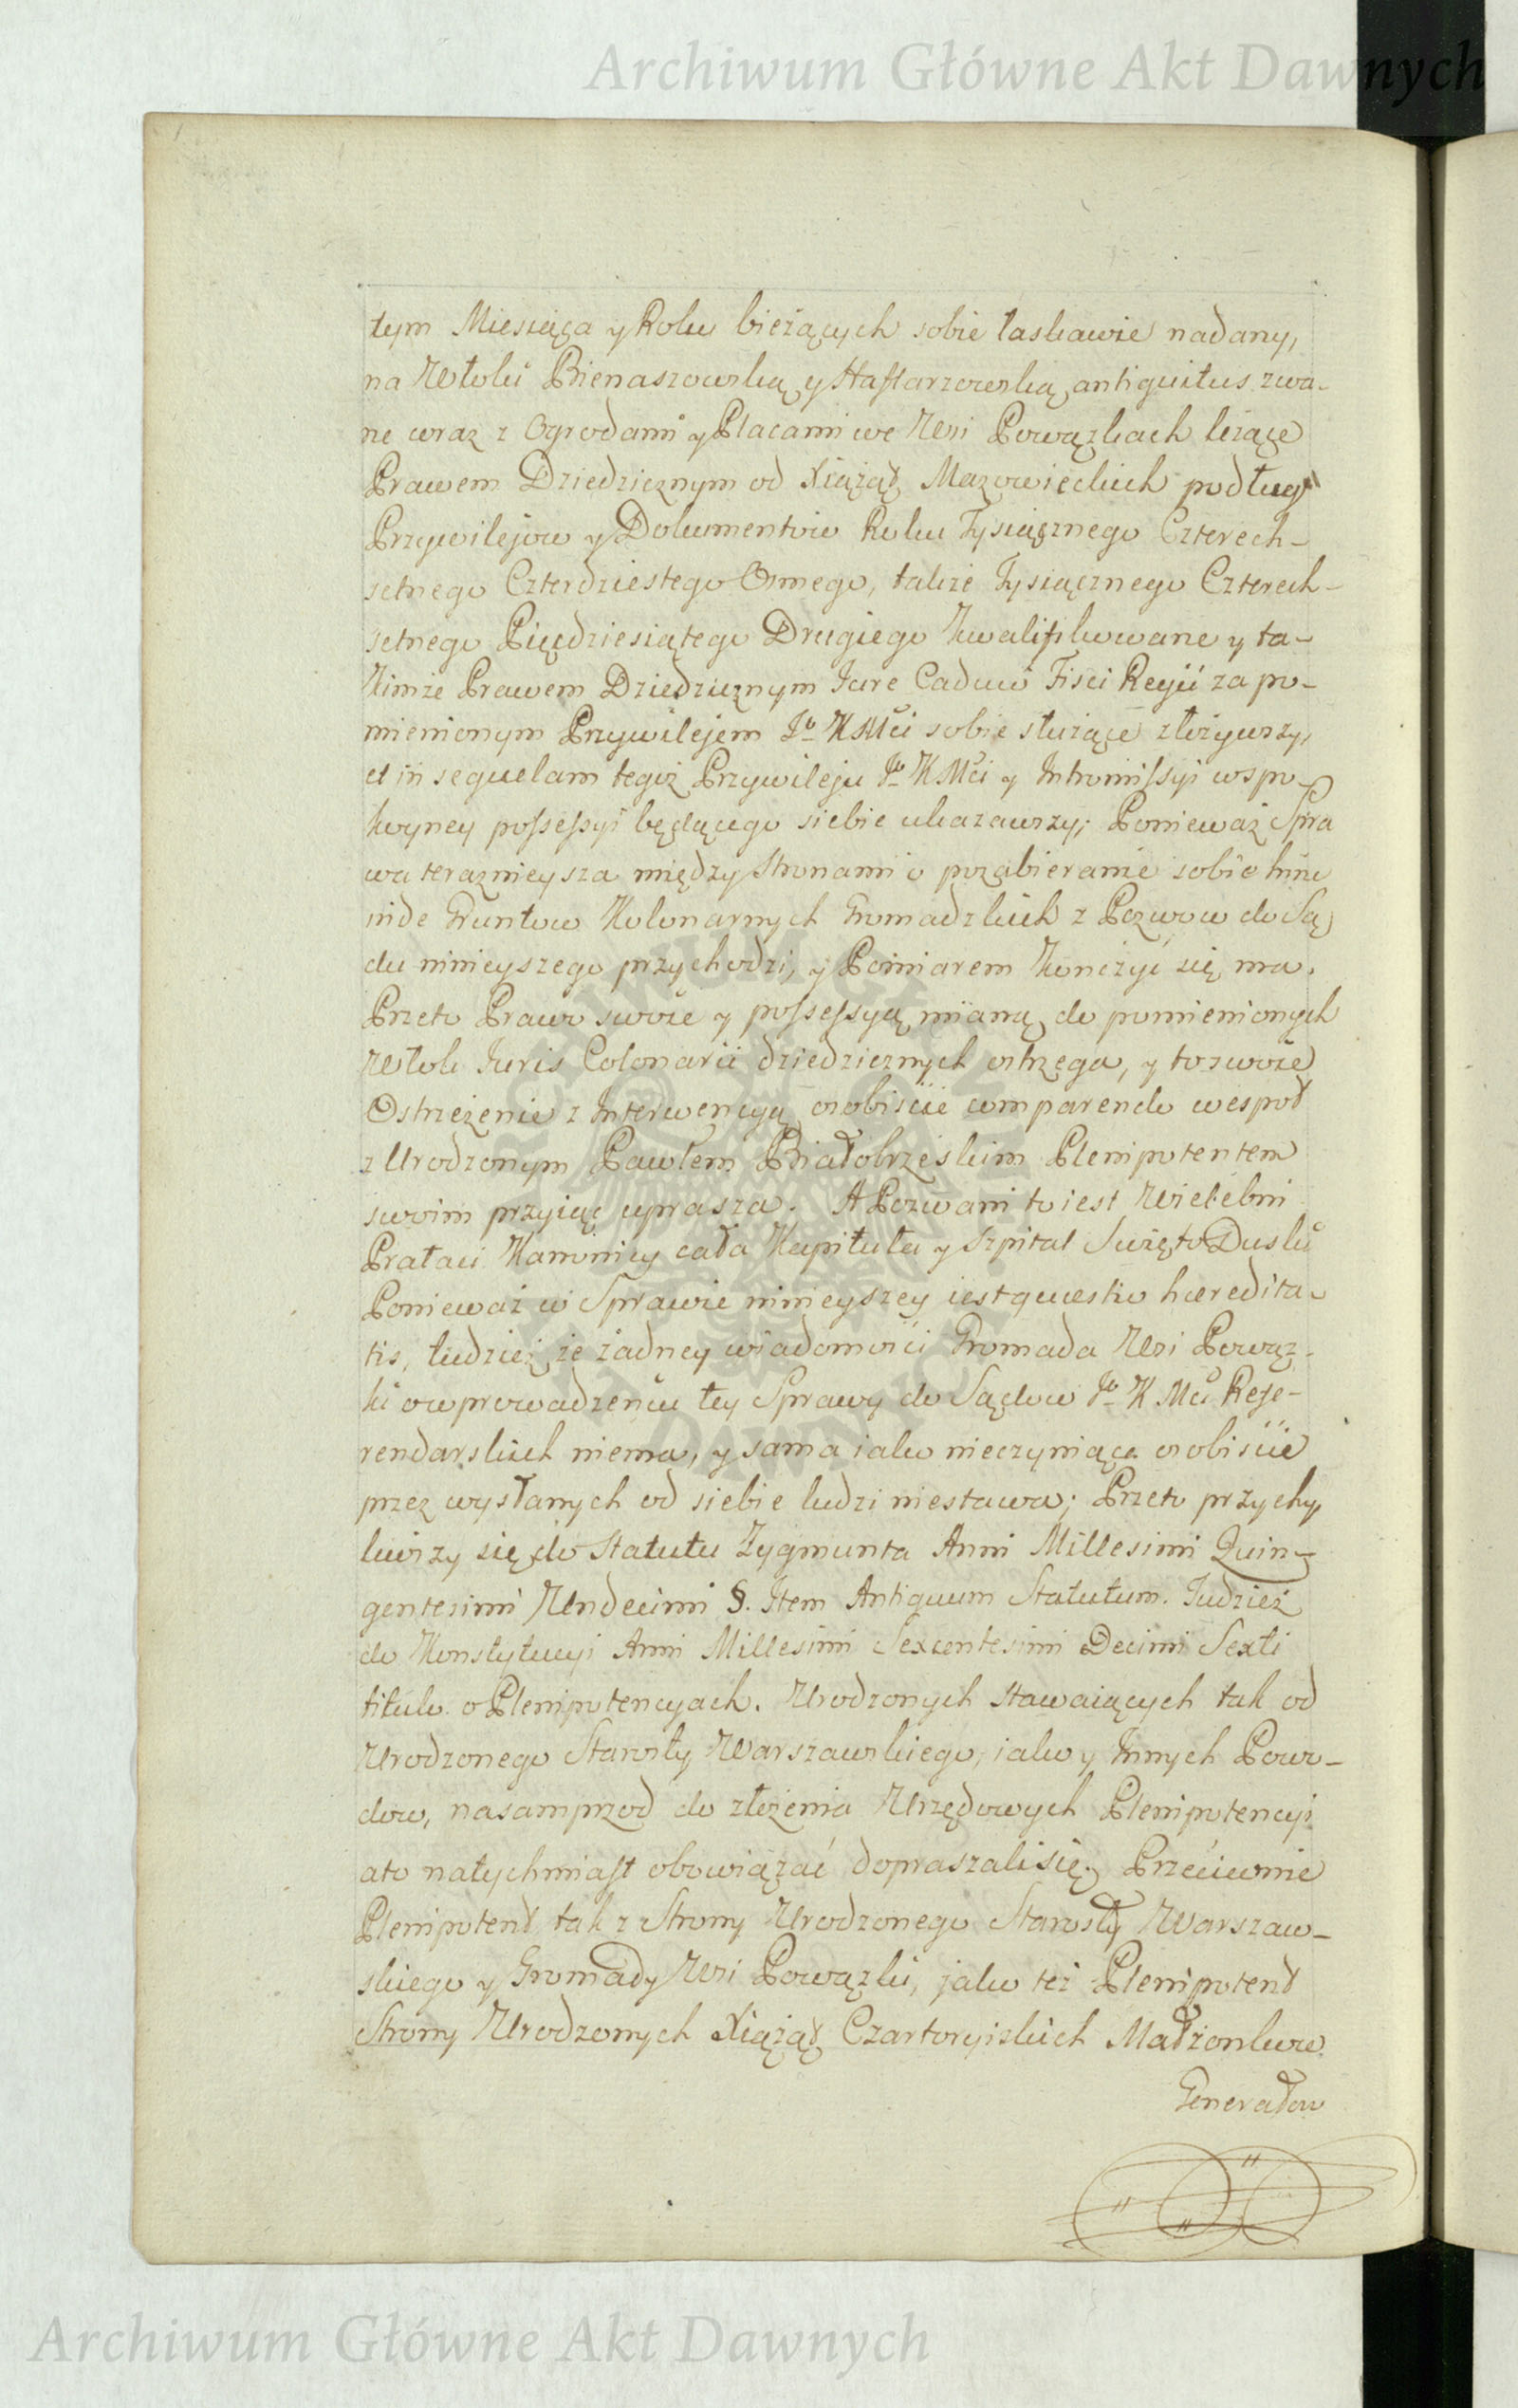 Archiwum Główne Akt Dawnych
tym Miesiąca y Roku bieżących sobie łaskawie nadany,
na Włoki Bienaszowską y Haftarzowską antiquitus zwa-
ne wraz z Ogrodami y Placami we Wsi Powązkach leżące
Prawem Dziedzicznym od Xiążąt Mazowieckich podług
Przywilejow y Dokumentow Roku Tysiącznego Czterech-
setnego Czterdziestego Osmego, także Tysiącznego Czterech-
setnego Pięćdziesiątego Drugiego Kwalifikowane y ta-
kimże Prawem Dziedzicznym Jure Caduco Fisci Regii za po-
mienionym Przywilejem Jo KMci sobie służące złożywszy,
et in sequelam tegoż Przywileju Jo KMci y Intromissyi w spo-
koyney possessyi będącego siebie ukazawszy; Ponieważ Spra
wa teraznieysza między Stronami o pozabieranie sobie hinc
inde Gruntow Kolonarnych Gromadzkich z Pozwow do Są
du ninieyszego przychodzi, y Pomiarem kończyć się ma.
Przeto Prawo swoie y possessyą mianą do pomienionych
Włok Juris Colonarii dziedzicznych ostrzega, y to swoie
Ostrzeżenie z Interwencyą osobiście comparendo wespoł
z Urodzonym Pawłem Białobrzeskim Plenipotentem
swoim przyiąć uprasza. A Pozwani to iest Wielebni
Prałaci Kanonicy cała Kapituła y Szpital Święto Duski
Ponieważ w Sprawie ninieyszey iest quæstio hæredita-
tis, tudzież że żadney wiadomości Gromada Wsi Powąz-
ki o wprowadzeniu tey Sprawy do Sądow Jo K Mci Refe-
rendarskich niema, y sama iako nieczyniąca osobiście
przez wysłanych od siebie ludzi niestawa; Przeto przychy
liwszy się do Statutu Zygmunta Anni Millesimi Quin-
gentesimi Undecimi §. Item Antiquum Statutum. Tudzież
do Konstytucyi Anni Millesimi Sexcentesimi Decimi Sexti
titulo o Plenipotencyach. Urodzonych stawaiących tak od
Urodzonego Starosty Warszawskiego, iako y Innych Powo-
dow, nasamprzod do złożenia Urzędowych Plenipotencyi
ato natychmiast obowiązać dopraszali się. Przeciwnie
Plenipotent tak z Strony Urodzonego Starosty Warszaw-
skiego y Gromady Wsi Powązki, jako też Plenipotent
Strony Urodzonych Xiążąt Czartoryiskich Małżonkow
Generałow
Archiwum Główne Akt Dawnych